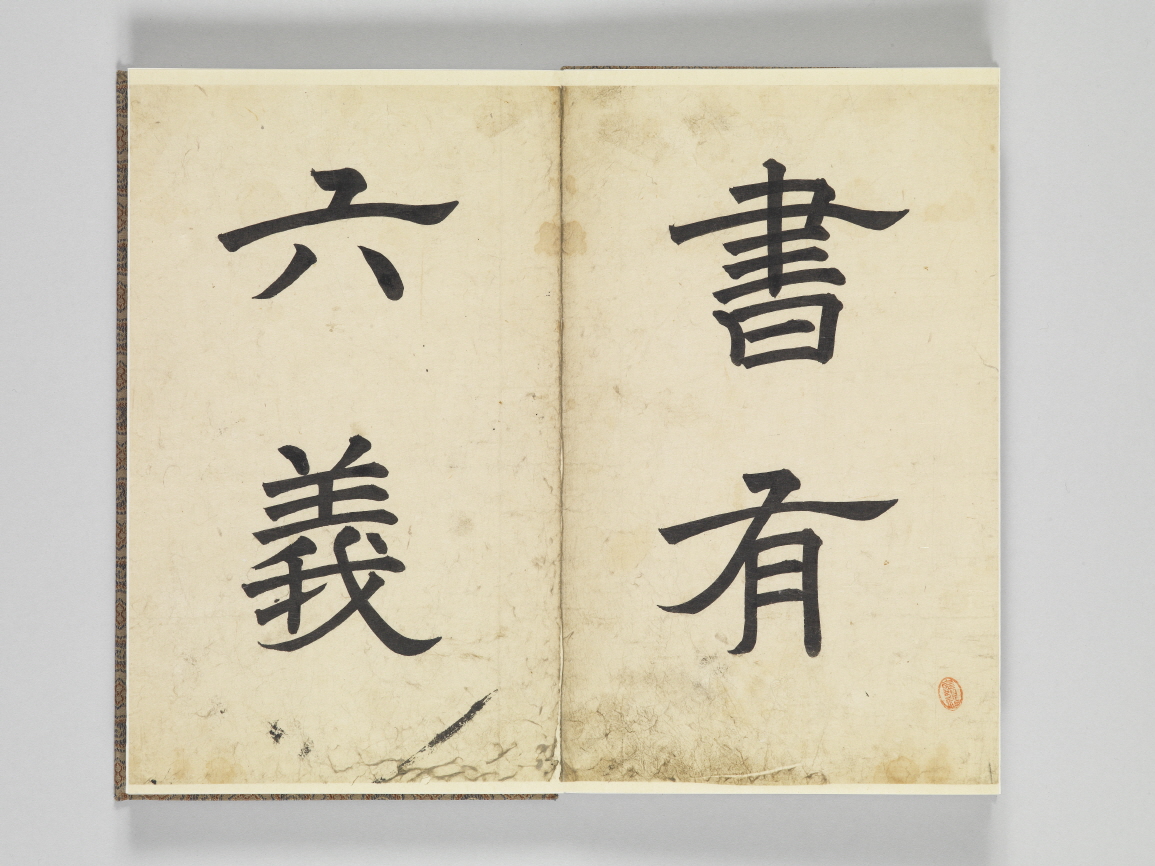 書有
六義